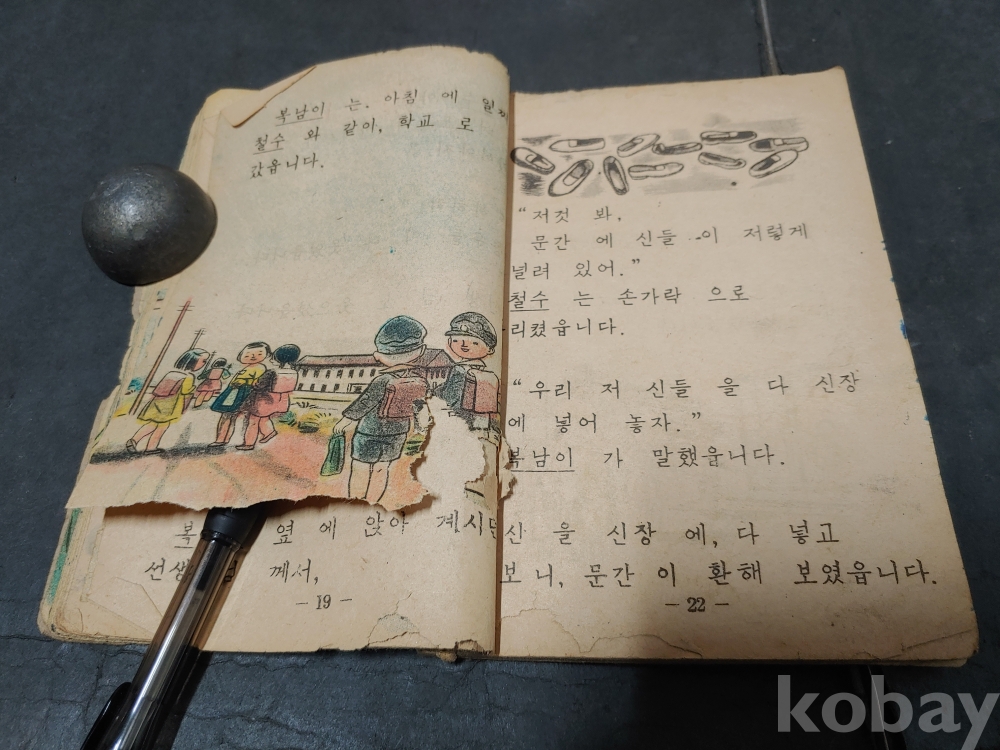 복남이 는. 아침 에 일찌
철수 와 같이, 학교 로
갔읍니다.
복 옆 에 앉아 계시던
선생 께서,
- 19 -
“저것 봐,
문간 에 신들 이 저렇게
널려 있어.”
철수 는 손가락 으로
리켰읍니다.
“우리 저 신들 을 다 신장
에 넣어 놓자.”
복남이 가 말했읍니다.
산 을 신장 에, 다 넣고
보니, 문간 이 환해 보였읍니다.
- 22 -
kobay